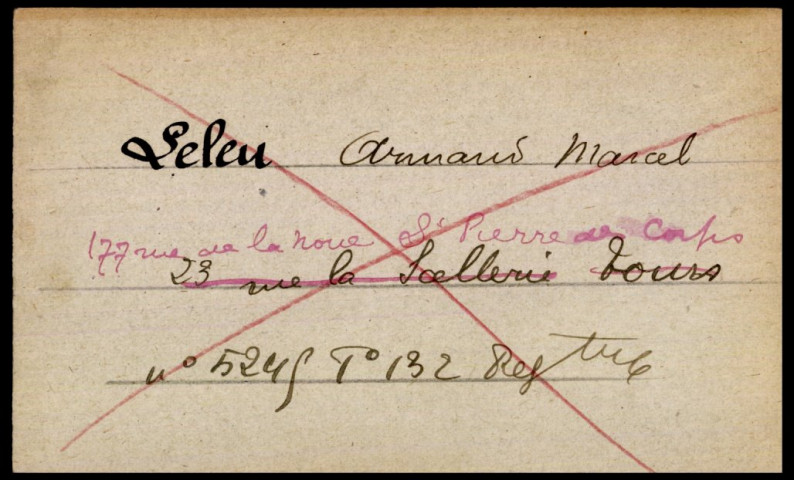 Leleu Armand Marcel
177 rue de la Noue St Pierre des Corps
23 rue la Scellerie Tours
n° 5245 T° 132 Reg tre 6